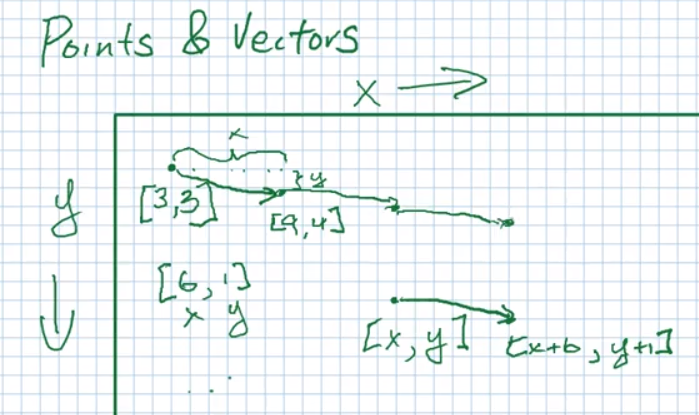 Points & Vectors
x
x
y
y
[3,3]
[9,4]
[6,1]
x y
[x,y]
[x+6, y+1]
...